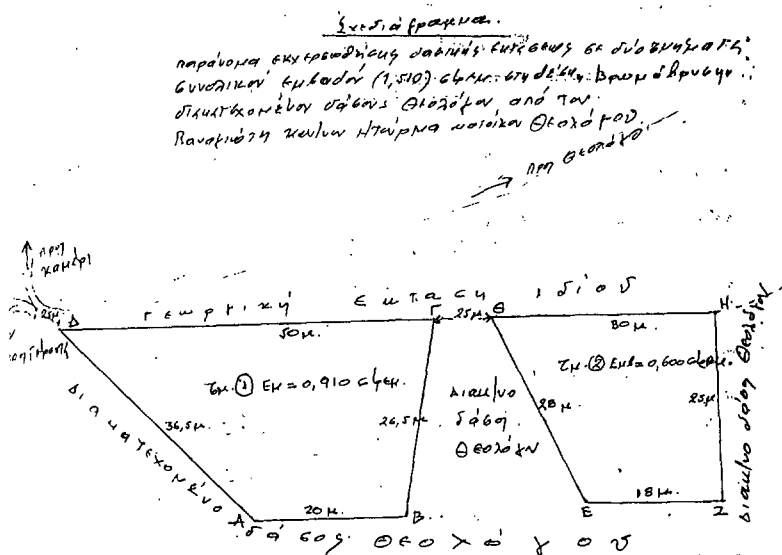 Σχεδιάγραμμα.
παράνομα εκχερσωθείσης δασικής εκτάσεως σε δύο τμήματα
συνολικού εμβαδού (1,510) στρεμ. στη θέση
διακατεχομένου δάσους Θεολόγου από τον
Παναγιώτη κατοίκου Θεολόγου
προς Θεολόγο
προς
Καμάρι
25μ.
Δ
Γεωργική έκταση ιδίου
Γ
25μ.
Θ
Η
50μ.
30μ.
τμ. ① Εμ = 0,910 στρεμ.
τμ. ② Εμβ = 0,600 στρεμ.
36,5μ.
26,5μ.
Διακ/νο
δάσος
Θεολόγου
28μ.
25μ.
Διακατεχομένο
Διακ/νο δάσος Θεολόγου
20μ.
18μ.
Α
Β
Ε
Ζ
δάσος Θεολόγου